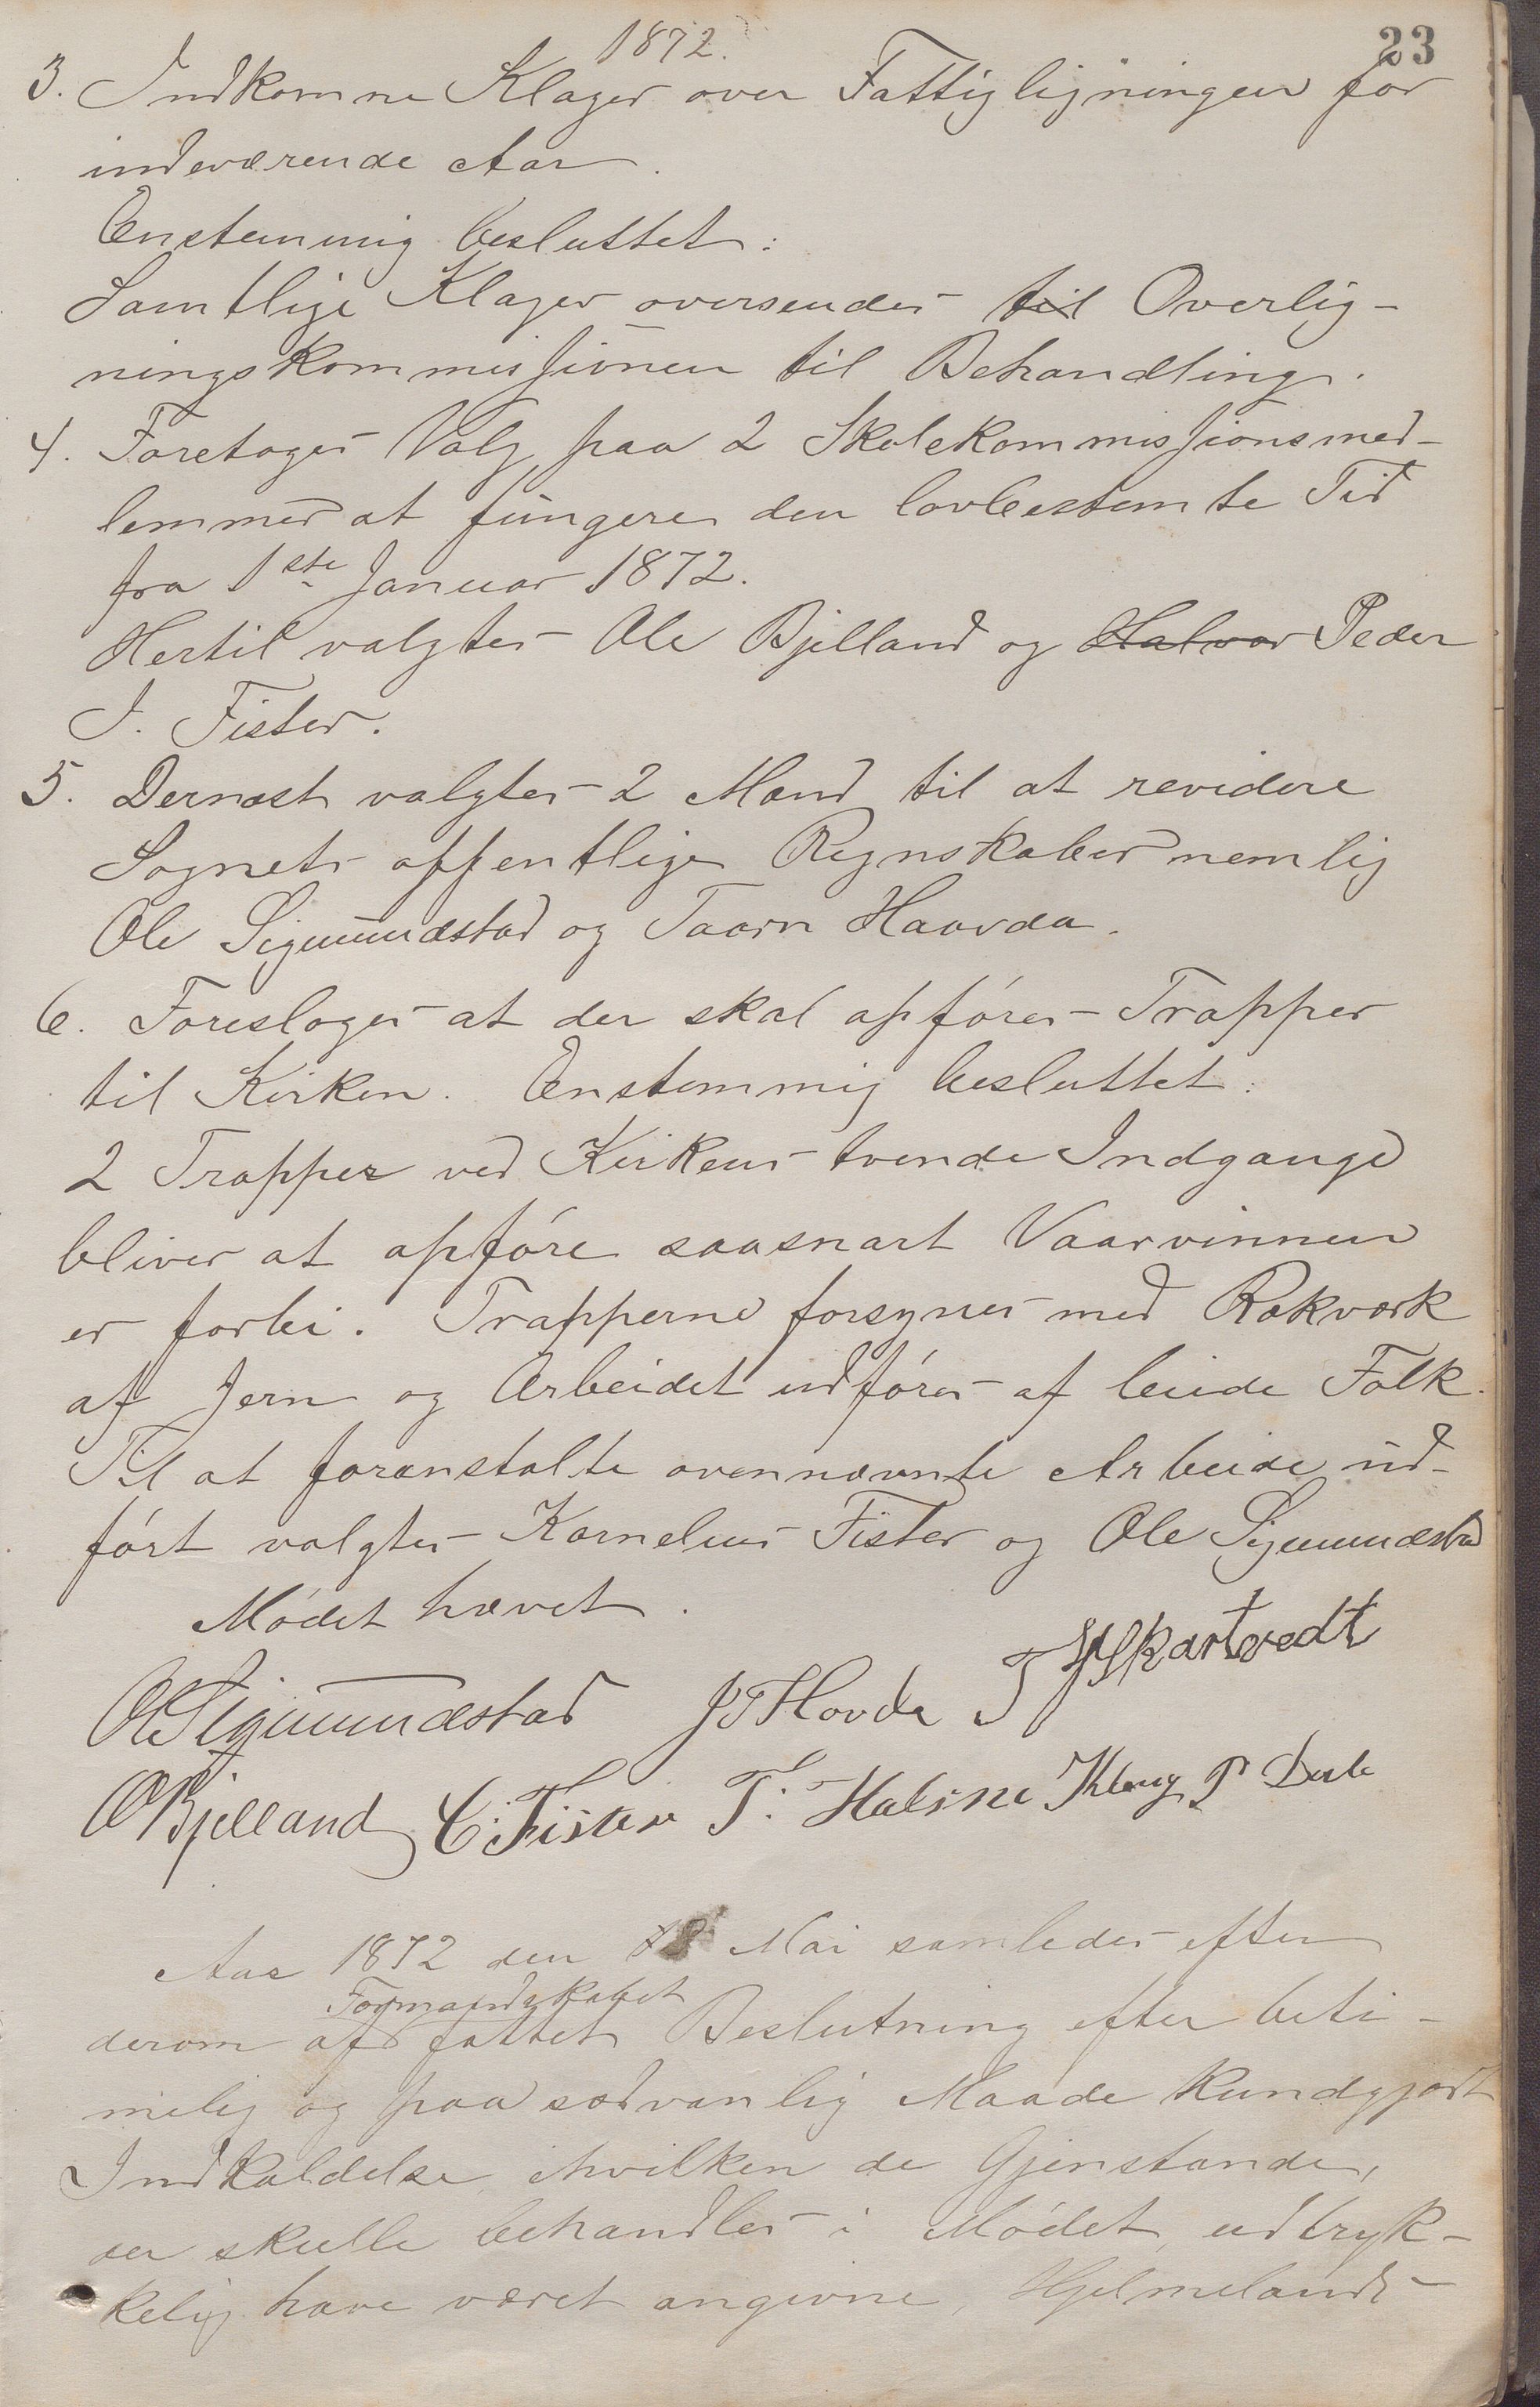 1872.
23
3. Indkomne Klager over Fattigligningen for
indeværende Aar.
Enstemmig besluttet:
Samtlige Klager oversendes til Overlig-
ningskommissionen til Behandling.
4. Foretoges Valg paa 2 Skolekommissionsmed-
lemmer at fungere den lovbestemte Tid
fra 1ste Januar 1872.
Hertil valgtes Ole Bjelland og Halvor Peder
J. Fister.
5. Dernæst valgtes 2 Mænd til at revidere
Sognets offentlige Regnskaber nemlig
Ole Sigmundstad og Taarn Haavda.
6. Foresloges at der skal opføres Trapper
til Kirken. Enstemmig besluttet:
2 Trapper ved Kirkens tvende Indgange
bliver at opføre saasnart Vaarvinnen
er forbi. Trapperne forsynes med Rækværk
af Jern og Arbeidet udføres af leiede Folk.
Til at foranstalte ovennævnte Arbeide ud-
ført valgtes Kornelius Fister og Ole Sigmundstad
Mødet hævet.
OSigmundstad J T Hovda T Skartvedt
OBjelland C. Fister T. Halsne P
Aar 1872 den Mai samledes efter
Formandskabet
derom af fattet Beslutning efter beti-
melig og paa sædvanlig Maade kundgjort
Indkaldelse, ihvilken de Gjenstande,
der skulle behandles i Mødet, udtryk-
kelig have været angivne, Hjelmelands